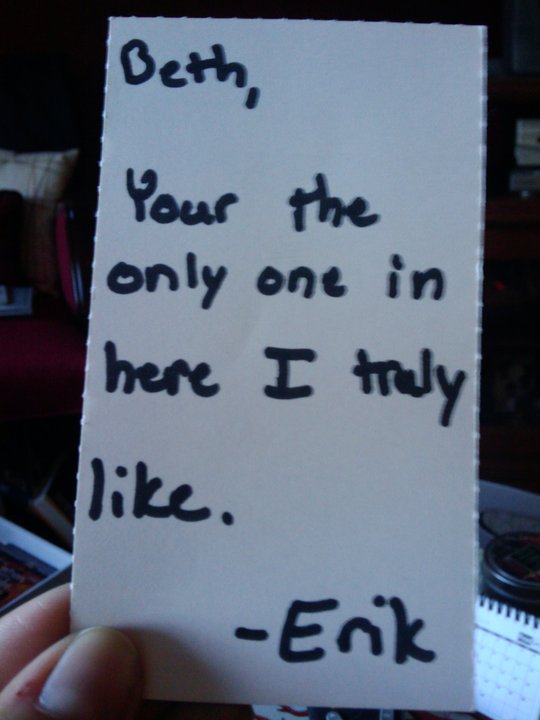 Beth,
Your the
only one in
here I truly
like.
-Erik